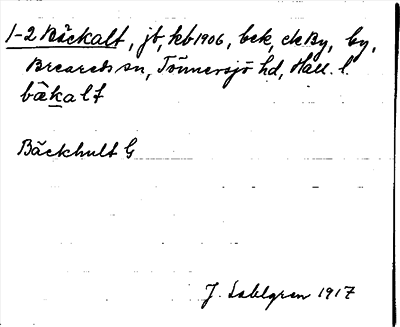 1-2 Bäckalt, jb, kb 1906, bek, ekBy, by,
Breareds sn, Tönnersjö hd, Hall. l.
bäkalt
Bäckhult G
J. Sahlgren 1917